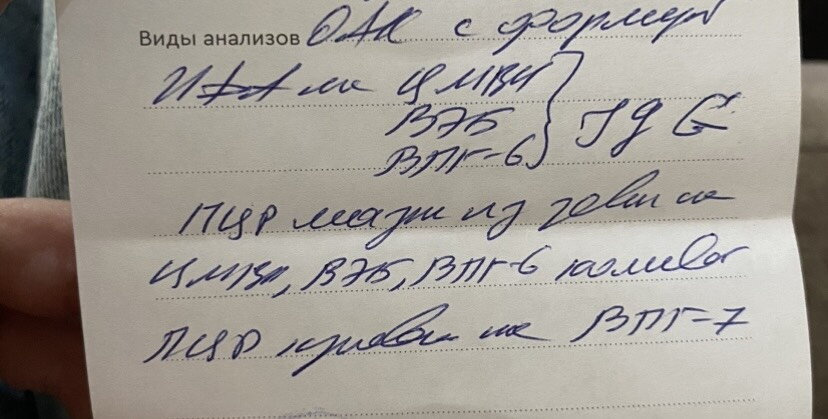 Виды анализов ОАК с формул
ИФА на ЦМВИ
ВЭБ
ВПГ-6 } Ig G
ПЦР мазки из зева на
ЦМВИ, ВЭБ, ВПГ-6 количест
ПЦР крови на ВПГ-7